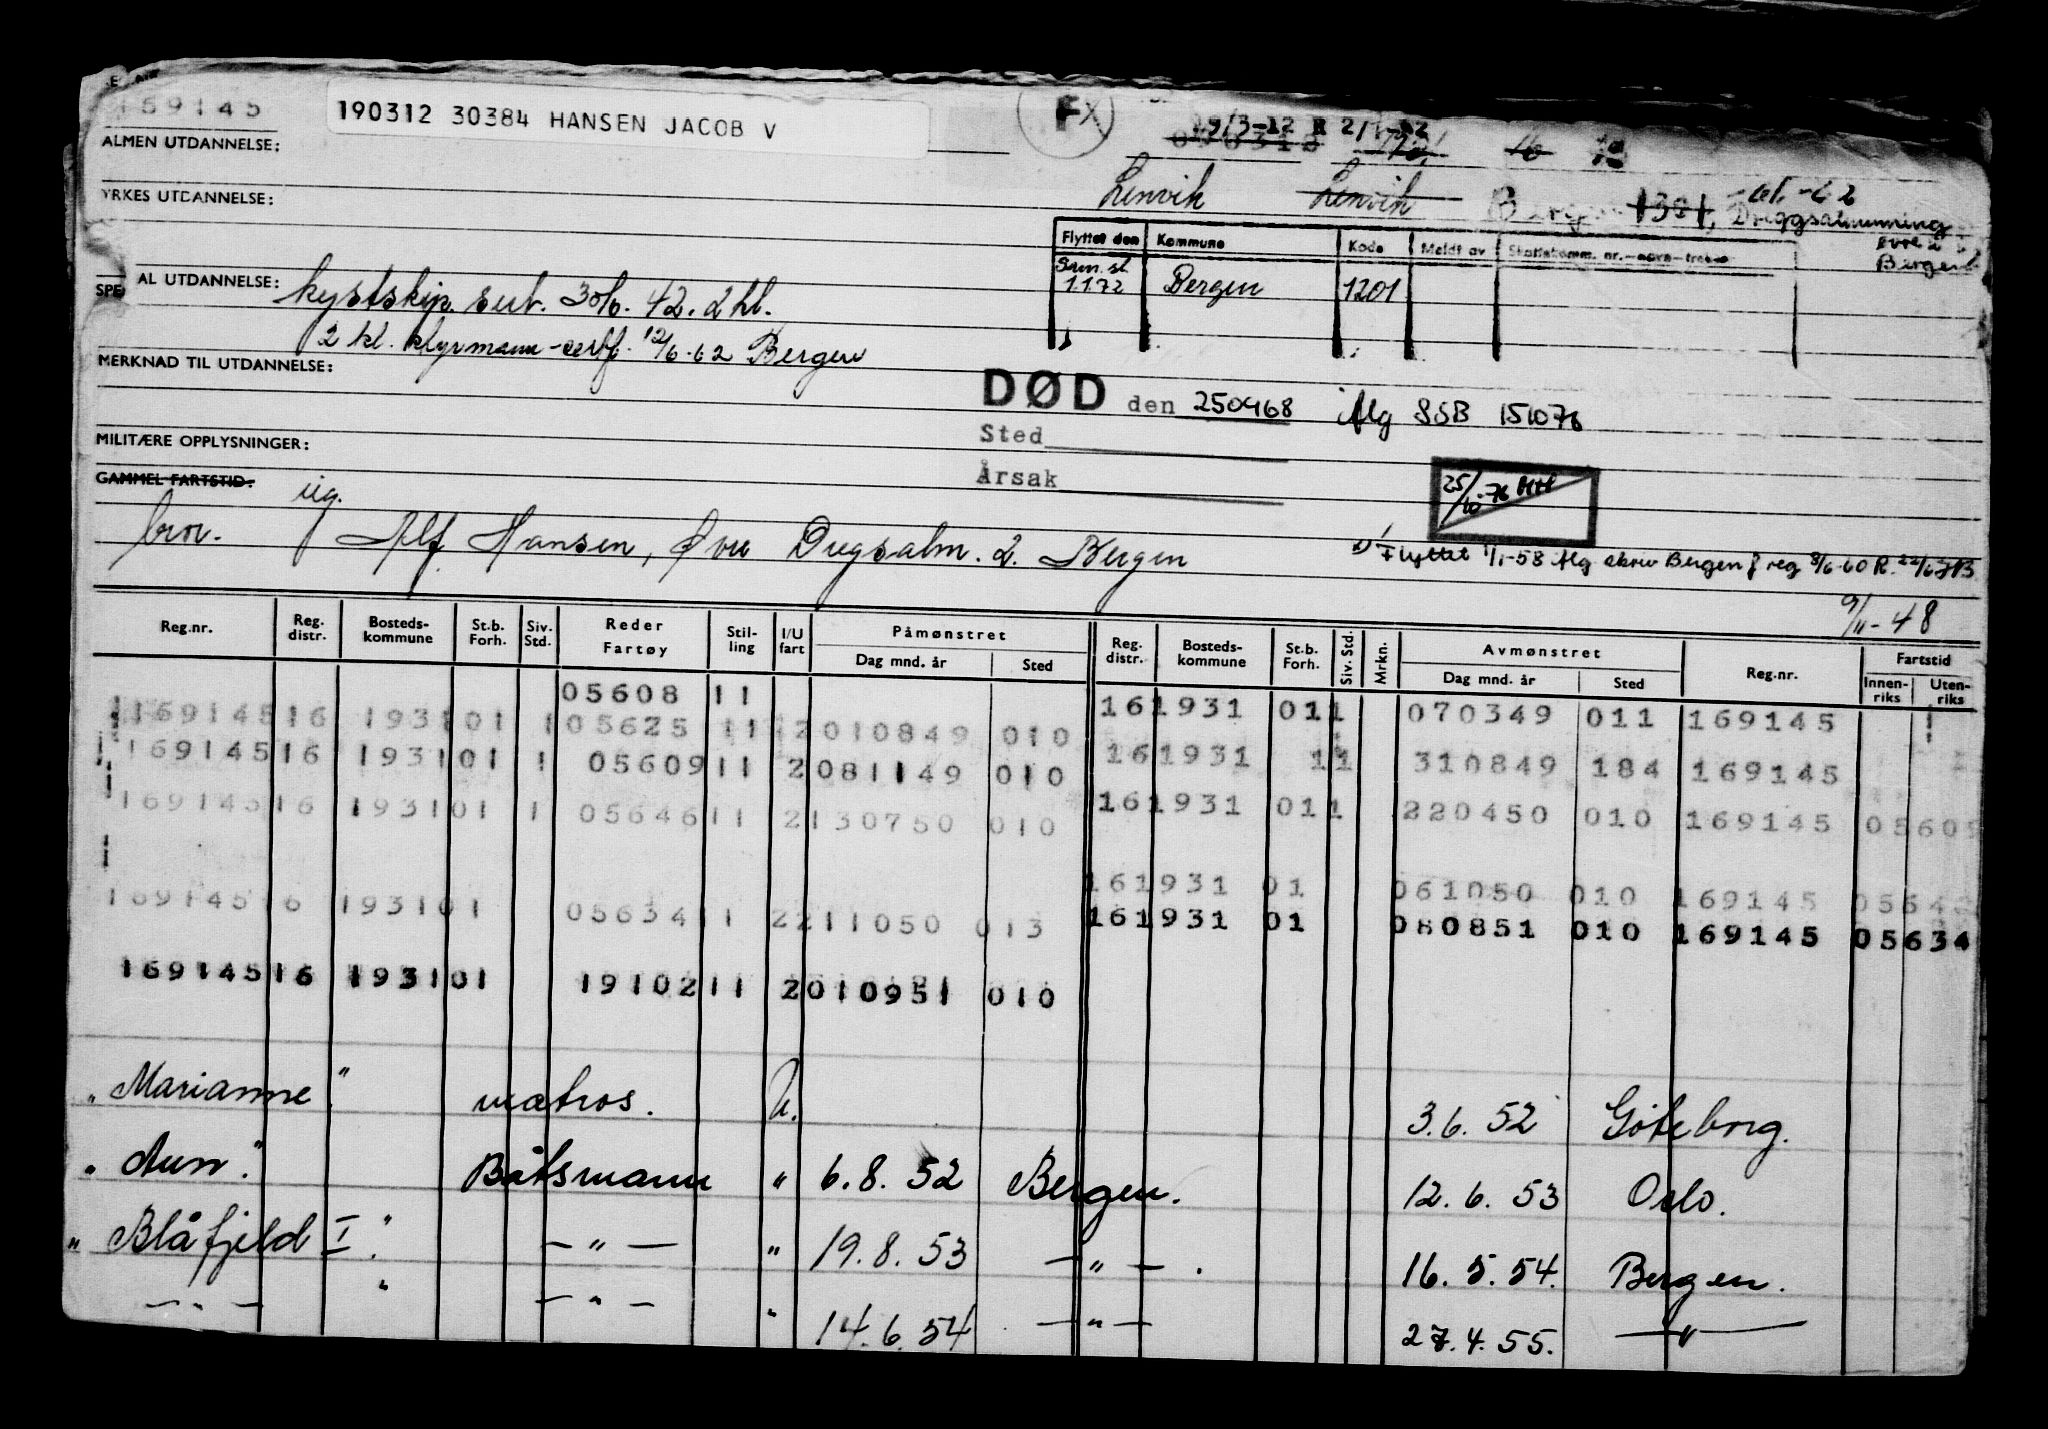 169145
190312 30384 HANSEN JACOB V
FX
19/3-12 R 2/1-62
Lenvik Lenvik Bergen 1301,
ALMEN UTDANNELSE:
YRKES UTDANNELSE:
Bergen
Flyttet den Kommune Kode Meldt av Skattekomm. nr.—navn—trekk
1172 Bergen 1201
SPESIAL UTDANNELSE: kystskip. sert. 30/6. 42. 2 kl.
2 kl. styrmann-sertf. 12/6-62 Bergen
MERKNAD TIL UTDANNELSE:
DØD den 250468 Mg SSB 151076
Sted
MILITÆRE OPPLYSNINGER:
Årsak
GAMMEL FARTSTID: ug.
25/10-76
bror. Alf Hansen, Øvre Dregsalm. 2. Bergen
Flyttet 1/1-58 Mg skriv Bergen f reg 8/6-60 R. 22/6
9/11-48
Reg.nr. Reg. distr. Bosteds-kommune St.b. Forh. Siv. Std. Reder Fartøy Stil-ling I/U fart Påmønstret Dag mnd. år Sted Reg. distr. Bosteds-kommune St.b. Forh. Siv. Std. Mrkn. Avmønstret Dag mnd. år Sted Reg.nr. Fartstid Innen-riks Uten-riks
05608 11 16 1931 01 1 070349 011 169145
169145 16 1931 01 1 05625 11 2 010849 010 16 1931 1 1 310849 184 169145
169145 16 1931 01 1 05609 11 2 081149 010 16 1931 01 1 220450 010 169145 05609
169145 16 1931 01 1 05646 11 2 130750 010
16 1931 01 061050 010 169145
169145 16 1931 01 05634 11 2 211050 013 16 1931 01 080851 010 169145 05634
169145 16 1931 01 19102 11 2 010951 010
"Marianne". matros. U. 3.6.52 Göteborg.
"Aun". Båtsmann " 6.8.52 Bergen. 12.6.53 Oslo.
"Blåfjeld I". — " — " 19.8.53 — " — . 16.5.54. Bergen.
— " — " — " — " 14.6.54 — " — 27.4.55. — " —